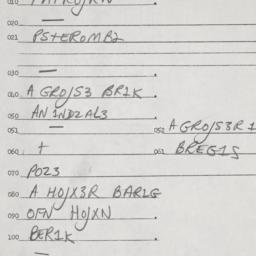 010
020 —
021 PS+EROMB2
030 —
040 A GROJS3 BR1K.
050 AN 1ND2AL3
051 — 052 A GROJS3R 1
060 + 061 BREG1S
070 POZ3
080 A HOJX3R BAR1G
090 OFN HOJXN.
100 BER1K.
—